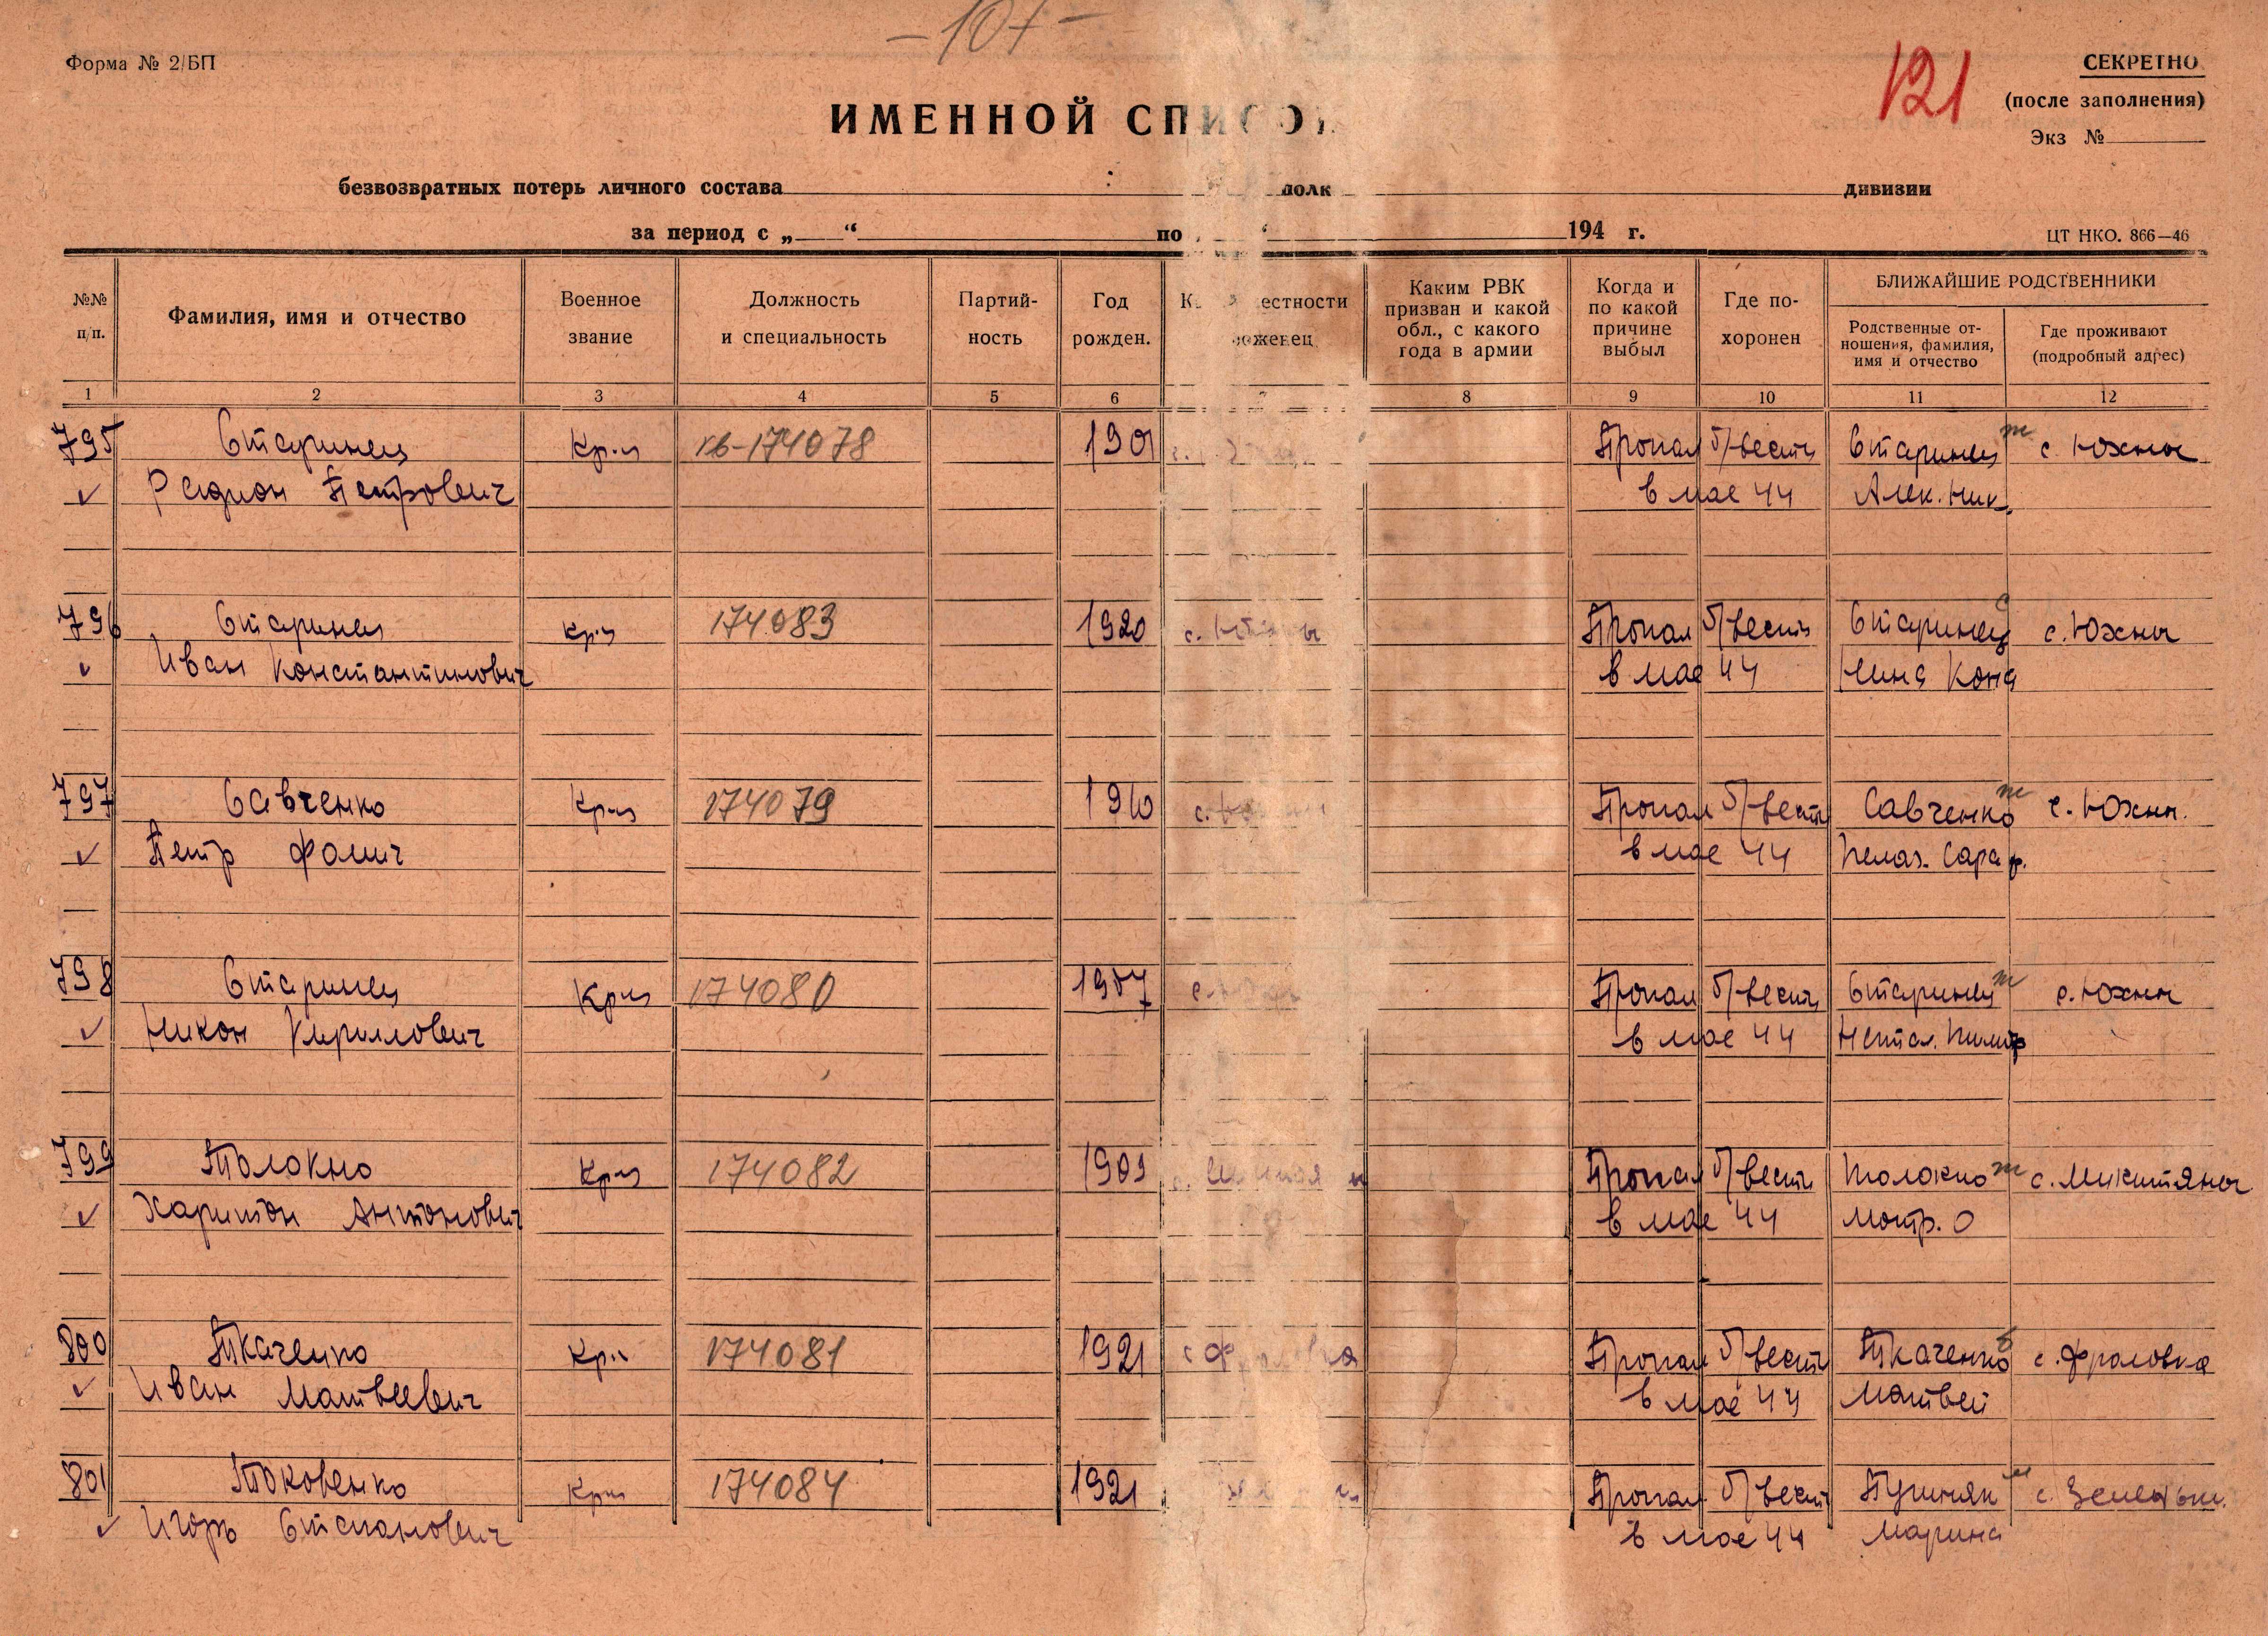 – 107 –
Форма № 2/БП
121
СЕКРЕТНО
(после заполнения)
Экз №
ИМЕННОЙ СПИСОК
безвозвратных потерь личного состава полк дивизии
за период с „ “ по “ 194 г.
ЦТ НКО. 866—46
№№ п/п.
Фамилия, имя и отчество
Военное звание
Должность и специальность
Партий-
ность
Год рожден.
естности
оженец
Каким РВК
призван и какой
обл., с какого
года в армии
Когда и
по какой
причине
выбыл
Где по-
хоронен
БЛИЖАЙШИЕ РОДСТВЕННИКИ
Родственные от-
ношения, фамилия,
имя и отчество
Где проживают
(подробный адрес)
1 2 3 4 5 6 7 8 9 10 11 12
795 Старинец Кр-ц кв-174078 1901 Пропал б/вести Старинец ж с. Южны
Радион Петрович в мае 44 Алек. Ник.
796 Старинец Кр-ц 174083 1920 с. Южны Пропал б/вести Старинец с с. Южны
Иван Константинович в мае 44 Нина Конд
797 Савченко Кр-ц 174079 1910 с. Пропал б/вести Савченко ж с. Южн.
Петр Фомич в мае 44 Пелаг. Сараф.
798 Старинец Кр-ц 174080 1907 с. Южн Пропал б/вести Старинец ж с. Южны
Никон Кирилович в мае 44 Натал. Пилип
799 Толокно Кр-ц 174082 1909 Пропал б/вести Толокно ж с. Микитяны
Харитон Антонович в мае 44 Мотр. О
800 Ткаченко Кр-ц 174081 1921 с Фроловка Пропал б/вести Ткаченко с. Фроловка
Иван Матвеевич в мае 44 Матвей
801 Токовенко Кр-ц 174084 1921 Пропал б/вести м с.
Игорь Степанович в мае 44 Марина